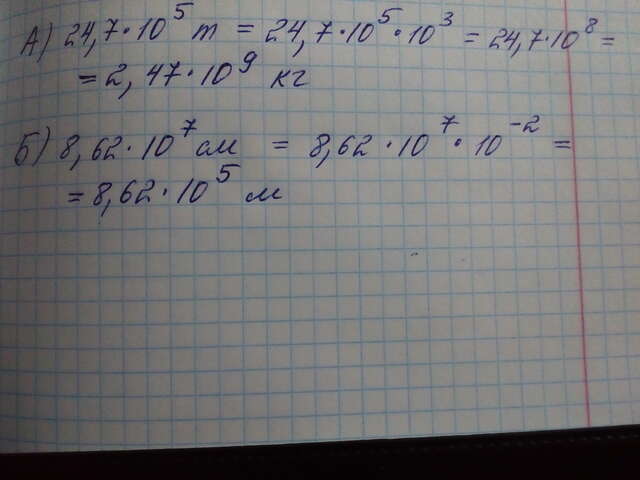 А) 24,7·10⁵ т = 24,7·10⁵·10³ = 24,7·10⁸ =
= 2,47·10⁹ кг
Б) 8,62·10⁷ см = 8,62·10⁷·10⁻² =
= 8,62·10⁵ м